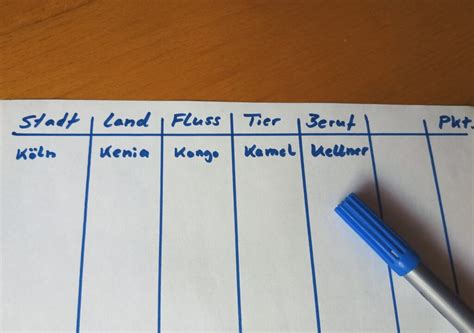 Stadt Land Fluss Tier Beruf Pkt.
Köln Kenia Kongo Kamel Kellner